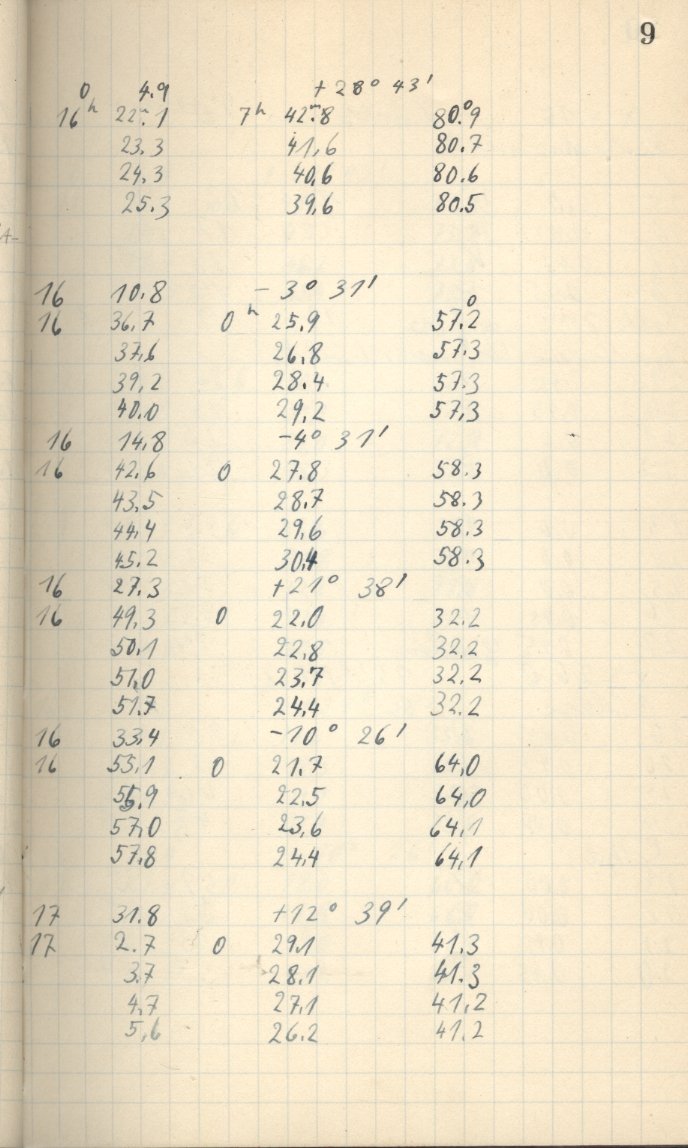 9
0 4.9 +28° 43'
16ʰ 22ᵐ.1 7ʰ 42ᵐ.8 80°.9
23.3 41,6 80.7
24.3 40,6 80.6
25.3 39,6 80.5
16 10.8 -3° 31'
16 36,7 0ʰ 25.9 57°.2
37,6 26,8 57.3
39,2 28.4 57.3
40.0 29,2 57,3
16 14,8 -4° 31'
16 42,6 0 27.8 58.3
43,5 28.7 58.3
44,4 29,6 58.3
45.2 30,4 58.3
16 27.3 +21° 38'
16 49,3 0 22.0 32.2
50,1 22,8 32,2
51,0 23,7 32.2
51.7 24,4 32.2
16 33,4 -10° 26'
16 55,1 0 21.7 64,0
55,9 22,5 64,0
57,0 23,6 64,1
57,8 24,4 64,1
17 31.8 +12° 39'
17 2.7 0 29,1 41.3
3.7 28.1 41.3
4,7 27,1 41,2
5,6 26.2 41.2